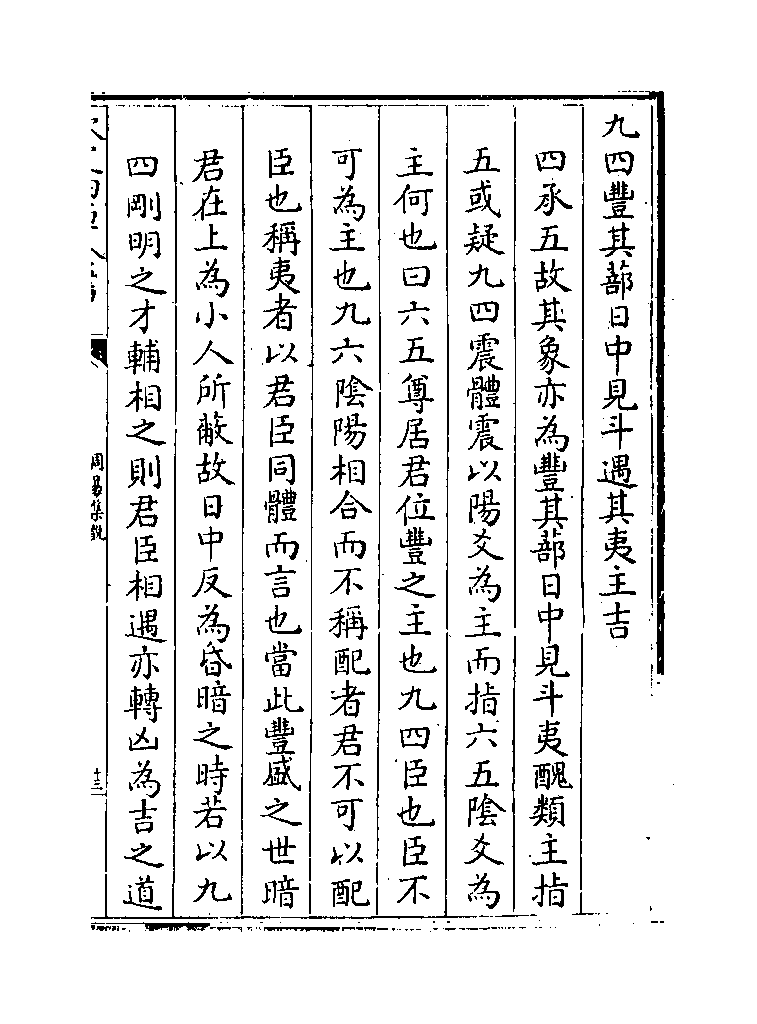 九四豐其蔀日中見斗遇其夷主吉
四承五故其象亦為豐其蔀日中見斗夷醜類主指
五或疑九四震體震以陽爻為主而指六五陰爻為
主何也曰六五尊居君位豐之主也九四臣也臣不
可為主也九六陰陽相合而不稱配者君不可以配
臣也稱夷者以君臣同體而言也當此豐盛之世暗
君在上為小人所蔽故日中反為昏暗之時若以九
四剛明之才輔相之則君臣相遇亦轉凶為吉之道
周易集說
十三